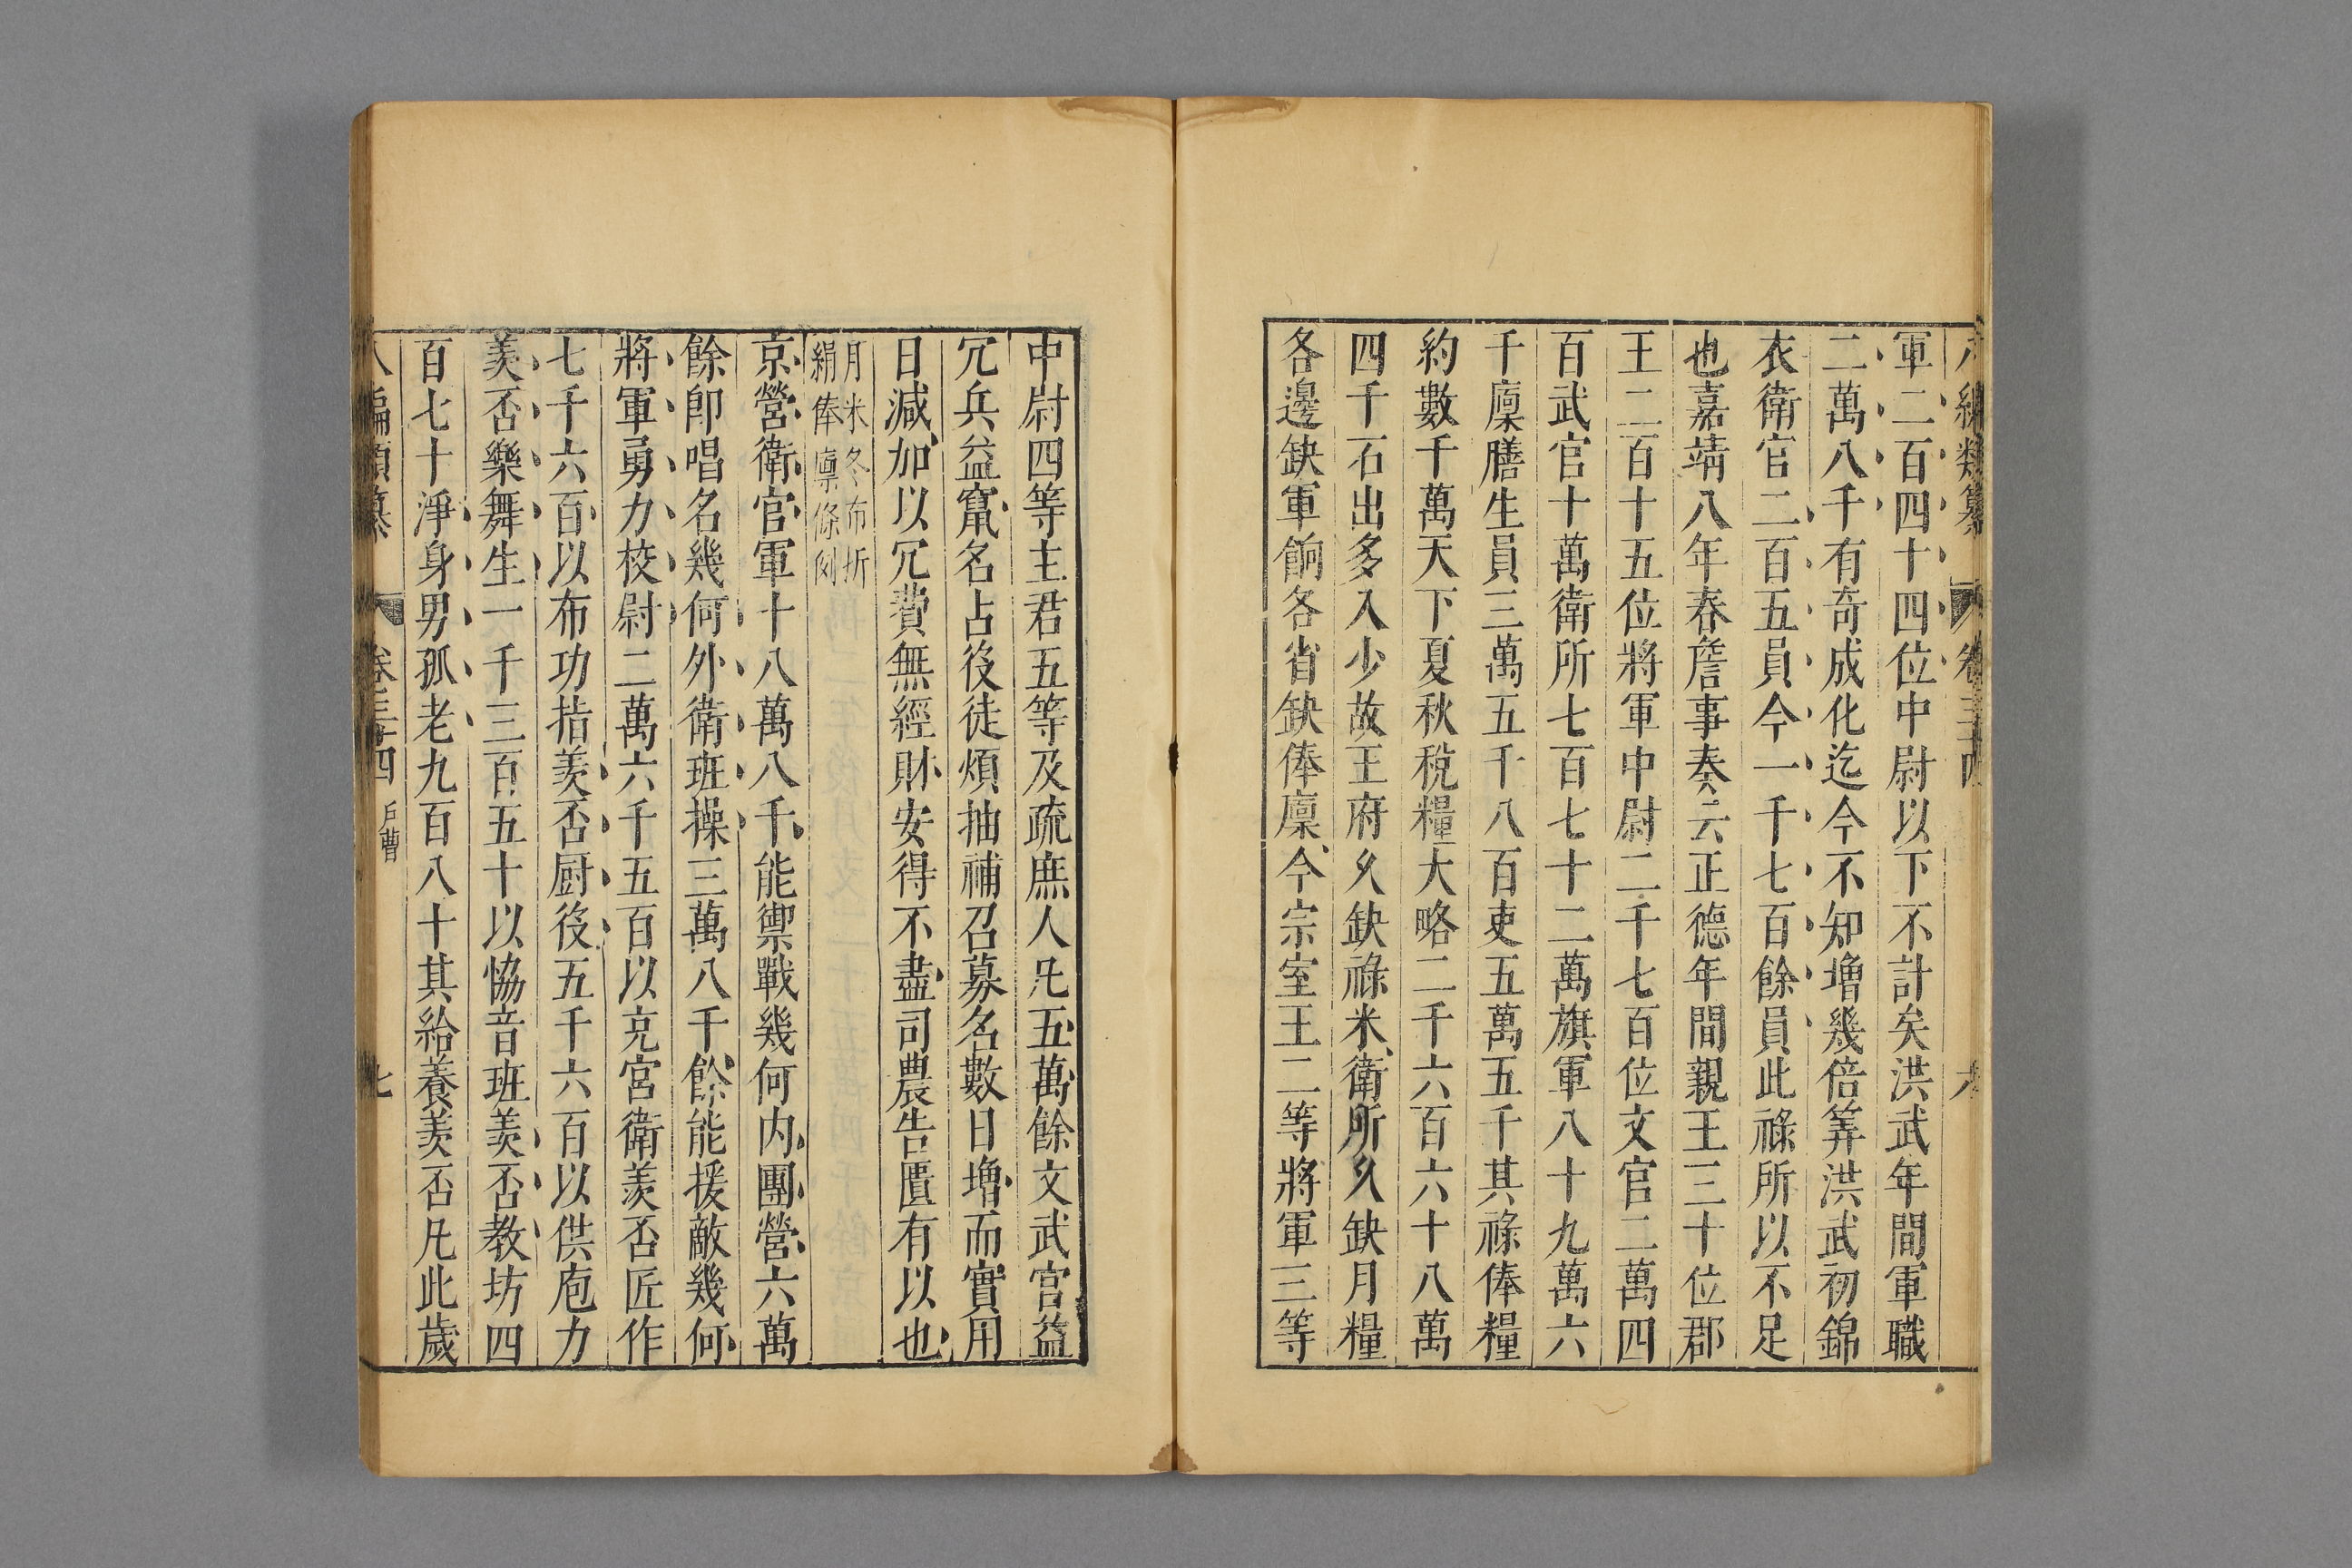 八編類纂 卷三十四 六
軍二百四十四位中尉以下不計矣洪武年間軍職
二萬八千有奇成化迄今不知增幾倍筭洪武初錦
衣衛官二百五員今一千七百餘員此祿所以不足
也嘉靖八年春詹事奏云正德年間親王三十位郡
王二百十五位將軍中尉二千七百位文官二萬四
百武官十萬衛所七百七十二萬旗軍八十九萬六
千廩膳生員三萬五千八百吏五萬五千其祿俸糧
約數千萬天下夏秋稅糧大略二千六百六十八萬
四千石出多入少故王府久缺祿米衛所久缺月糧
各邊缺軍餉各省缺俸廩今宗室王二等將軍三等
中尉四等主君五等及疏庶人凡五萬餘文武官益
冗兵益竄名占役徒煩抽補召募名數日增而實用
日減加以冗費無經財安得不盡司農告匱有以也
月米冬布折
絹俸廩條例
京營衛官軍十八萬八千能禦戰幾何内團營六萬
餘卽唱名幾何外衛班操三萬八千餘能援敵幾何
將軍勇力校尉二萬六千五百以克宮衛羨否匠作
七千六百以布功措羨否厨役五千六百以供庖力
羨否樂舞生一千三百五十以恊音班羨否教坊四
百七十淨身男孤老九百八十其給養羨否凡此歲
八編類纂 卷三十四 戶曹 七